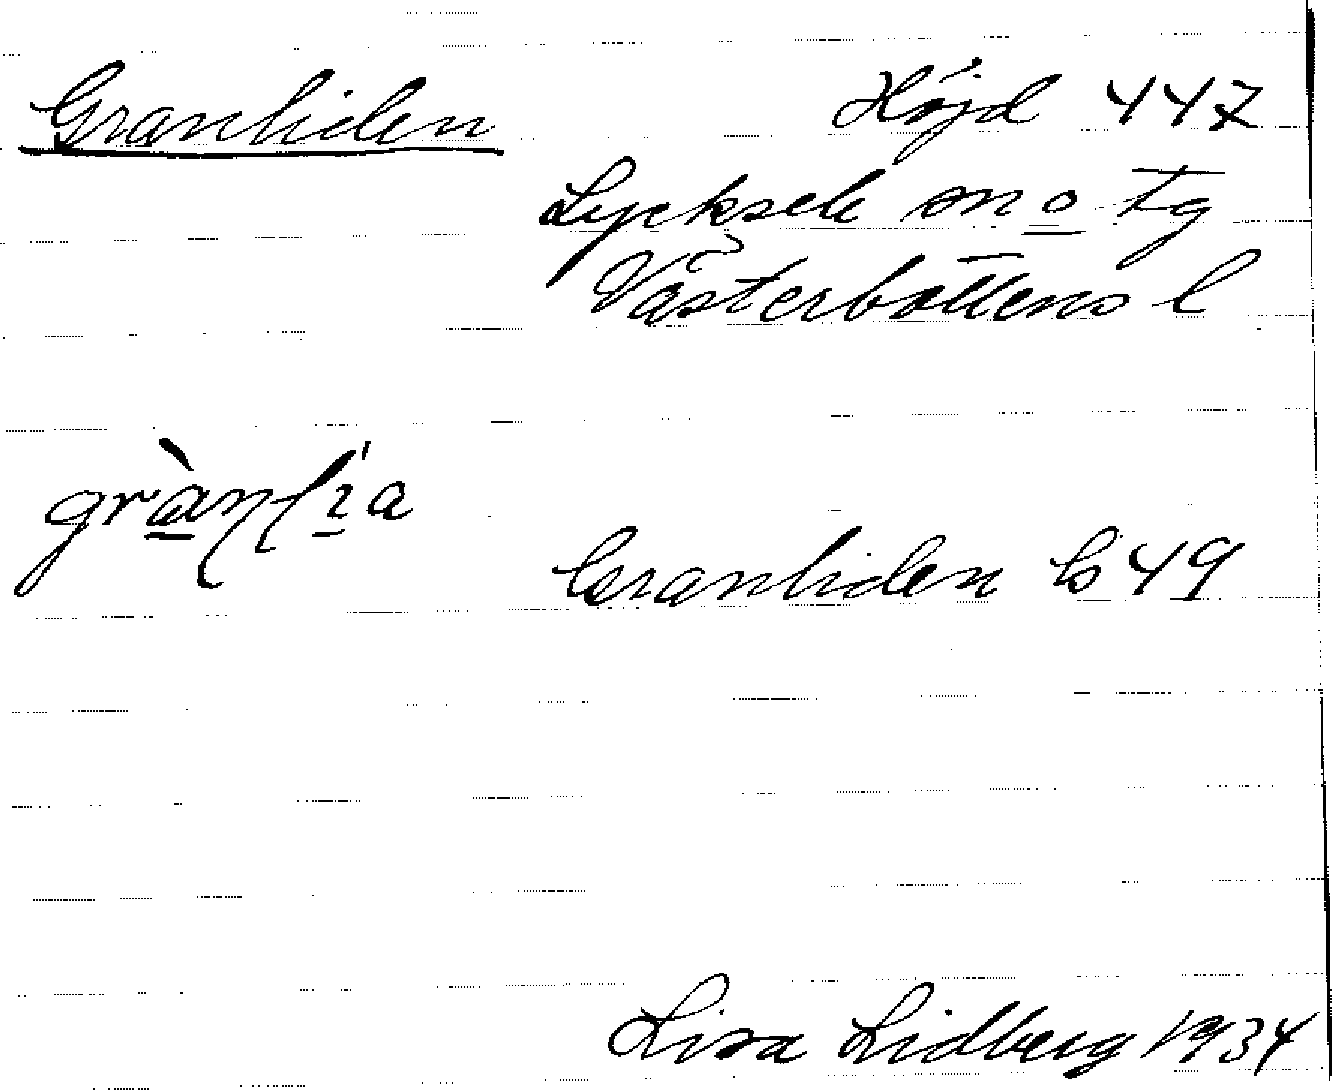 Granliden Höjd 447
Lycksele sn o Tg
Västerbottens l
Granliden b 49
Lisa Lidberg 1934